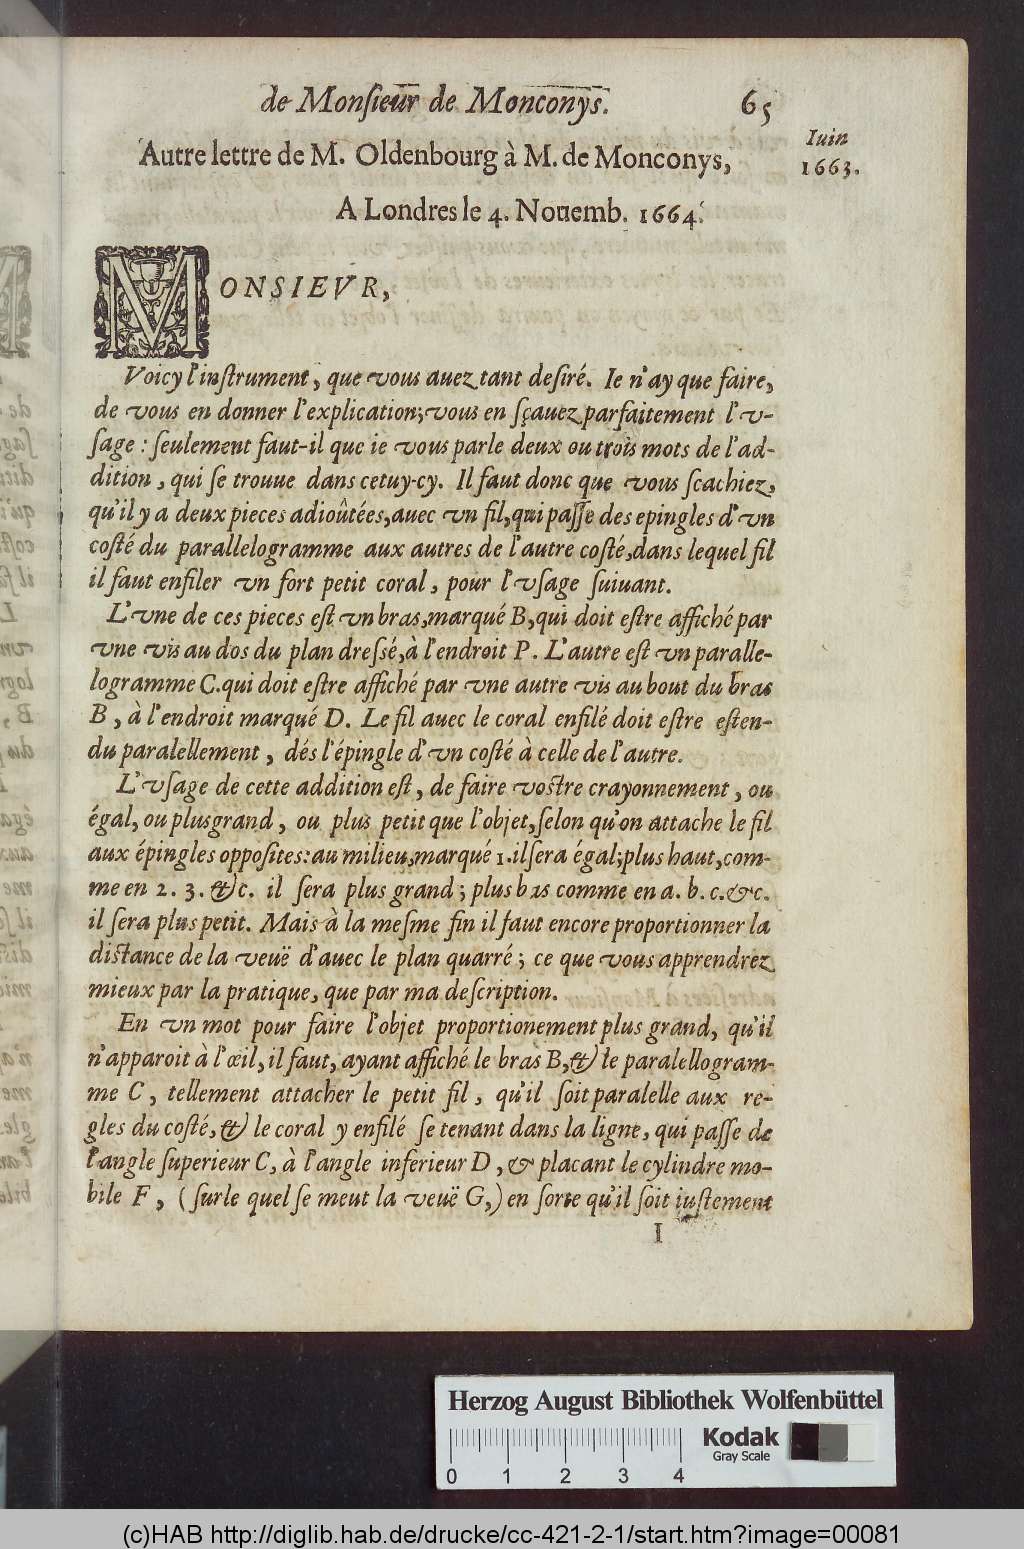 de Monſieur de Monconys. 65
Iuin
1663.
Autre lettre de M. Oldenbourg à M. de Monconys,
A Londres le 4. Nouemb. 1664.
MONSIEVR,
Voicy l'inſtrument, que vous auez tant deſiré. Ie n'ay que faire,
de vous en donner l'explication; vous en ſçauez parfaitement l'v-
ſage : ſeulement faut-il que ie vous parle deux ou trois mots de l'ad-
dition, qui ſe trouue dans cetuy-cy. Il faut donc que vous ſcachiez,
qu'il y a deux pieces adioûtées, auec vn fil, qui paſſe des epingles d'vn
coſté du parallelogramme aux autres de l'autre coſté, dans lequel fil
il faut enfiler vn fort petit coral, pour l'vſage ſuiuant.
L'vne de ces pieces eſt vn bras, marqué B, qui doit eſtre affiché par
vne vis au dos du plan dreſſé, à l'endroit P. L'autre eſt vn paralle-
logramme C. qui doit eſtre affiché par vne autre vis au bout du bras
B, à l'endroit marqué D. Le fil auec le coral enfilé doit eſtre eſten-
du paralellement, dés l'épingle d'vn coſté à celle de l'autre.
L'vſage de cette addition eſt, de faire voſtre crayonnement, ou
égal, ou plus grand, ou plus petit que l'objet, ſelon qu'on attache le fil
aux épingles oppoſites: au milieu, marqué 1. il ſera égal; plus haut, com-
me en 2. 3. &c. il ſera plus grand; plus bas comme en a. b. c. &c.
il ſera plus petit. Mais à la meſme fin il faut encore proportionner la
diſtance de la veuë d'auec le plan quarré; ce que vous apprendrez
mieux par la pratique, que par ma deſcription.
En vn mot pour faire l'objet proportionement plus grand, qu'il
n'apparoit à l'œil, il faut, ayant affiché le bras B, & le paralellogram-
me C, tellement attacher le petit fil, qu'il ſoit paralelle aux re-
gles du coſté, & le coral y enfilé ſe tenant dans la ligne, qui paſſe de
l'angle ſuperieur C, à l'angle inferieur D, & placant le cylindre mo-
bile F, (ſur le quel ſe meut la veuë G,) en ſorte qu'il ſoit iuſtement
I
Herzog August Bibliothek Wolfenbüttel
Kodak
Gray Scale
0 1 2 3 4
(c)HAB http://diglib.hab.de/drucke/cc-421-2-1/start.htm?image=00081